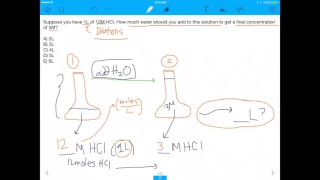 Suppose you have 1L of 12M HCl. How much water should you add to this solution to get a final concentration
of 3M?
A) 2L
B) 3L
C) 4L
D) 5L
E) 6L
Dilutions
1
2
add H2O
moles
L
3M
L?
12 M HCl (1L)
3 M HCl
12 moles HCl